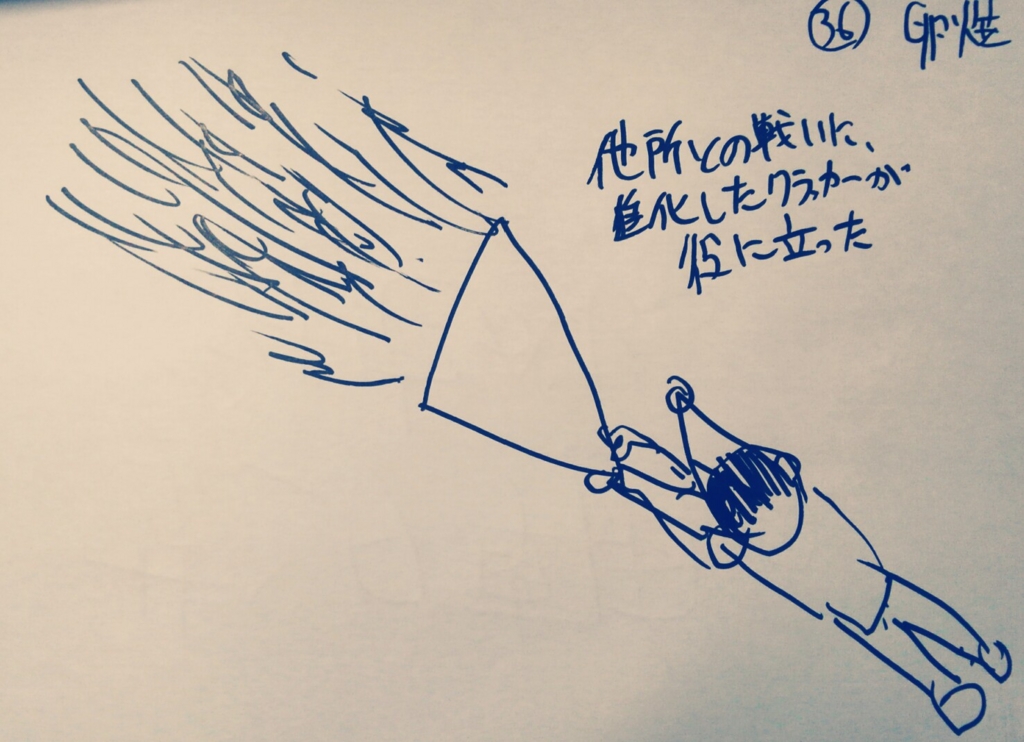 ㊱ 卵煙
他所との戦いに、
進化したクラッカーが
役に立った